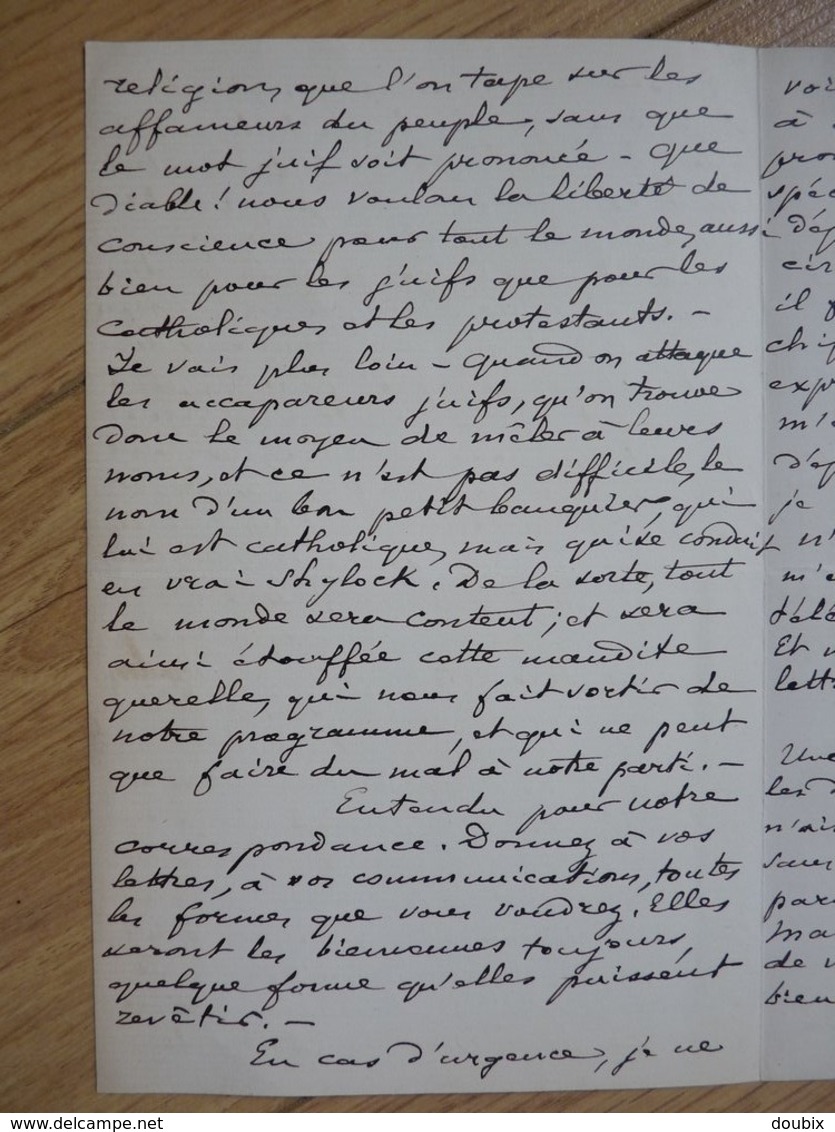 religion, que l'on tape sur les
affameurs du peuple, sans que
le mot juif soit prononcé - Que
diable! nous voulons la liberté de
conscience pour tout le monde, aussi
bien pour les juifs que pour les
catholiques et les protestants. -
Je vais plus loin - Quand on attaque
les accapareurs juifs, qu'on trouve
donc le moyen de mêler à leurs
noms, et ce n'est pas difficile, le
nom d'un bon petit banquier, qui
lui est catholique, mais qui se conduit
en vrai Shylock. De la sorte, tout
le monde sera content; et sera
ainsi étouffée cette maudite
querelle, qui nous fait sortir de
notre programme, et qui ne peut
que faire du mal à notre parti. -
Entendu pour notre
correspondance. Donnez à vos
lettres, à vos communications, toutes
les formes que vous voudrez. Elles
seront les bienvenues toujours,
quelque forme qu'elles puissent
revêtir. -
En cas d'urgence, je ne
voi
à
pro
spéc
d'ap
cir
il f
chif
exp
m'
d'ap
je
n'
m'e
télé
Et
lett
Une
les d
n'ai
sau
par
Ma
de v
bien
www.delcampe.net
doubix